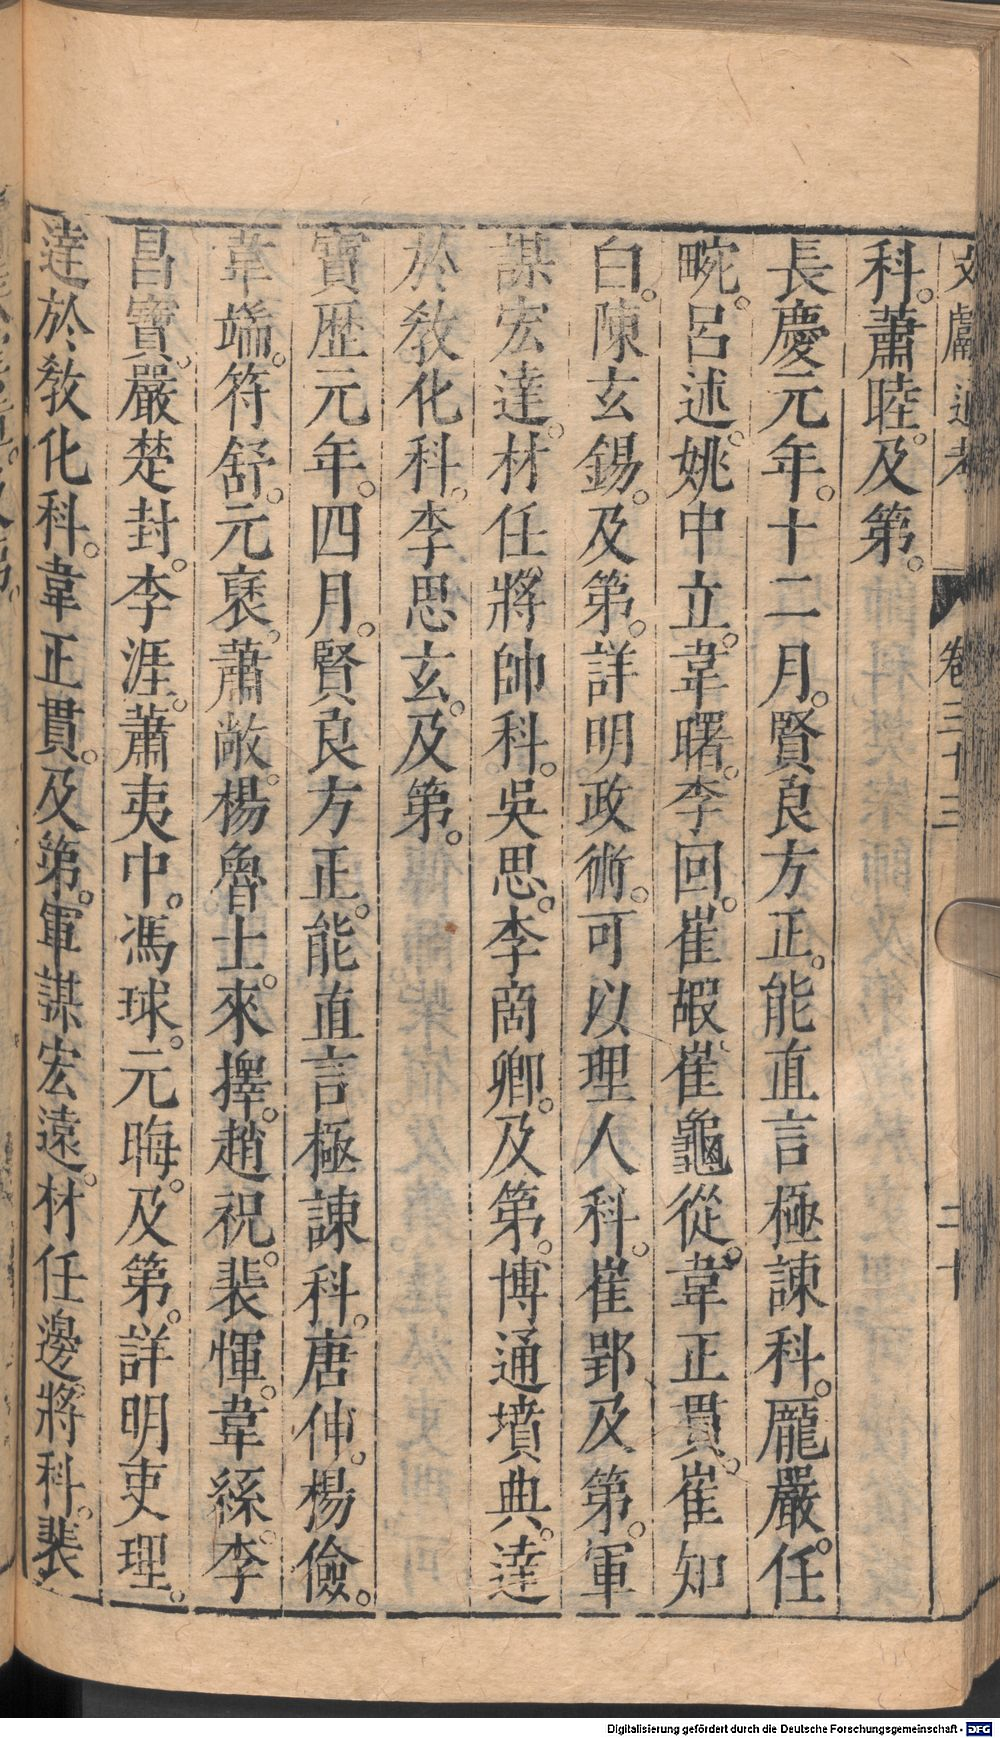 文獻通考 卷三十三 二十
科。蕭睦。及第。
長慶元年。十二月。賢良方正。能直言極諫科。龐嚴。任
畹。呂述。姚中立。韋曙。李回。崔嘏。崔龜從。韋正貫。崔知
白。陳玄錫。及第。詳明政術。可以理人科。崔郢及第。軍
謀宏達。材任將帥科。吳思。李商卿。及第。博通墳典。達
於敎化科。李思玄。及第。
寶歴元年。四月。賢良方正。能直言極諫科。唐伸。楊儉。
韋端。符舒。元褒。蕭敞。楊魯士。來擇。趙祝。裴惲。韋繇。李
昌寶。嚴楚封。李涯。蕭夷中。馮球。元晦。及第。詳明吏理。
達於敎化科。韋正貫。及第。軍謀宏遠。材任邊將科。裴
Digitalisierung gefördert durch die Deutsche Forschungsgemeinschaft - DFG